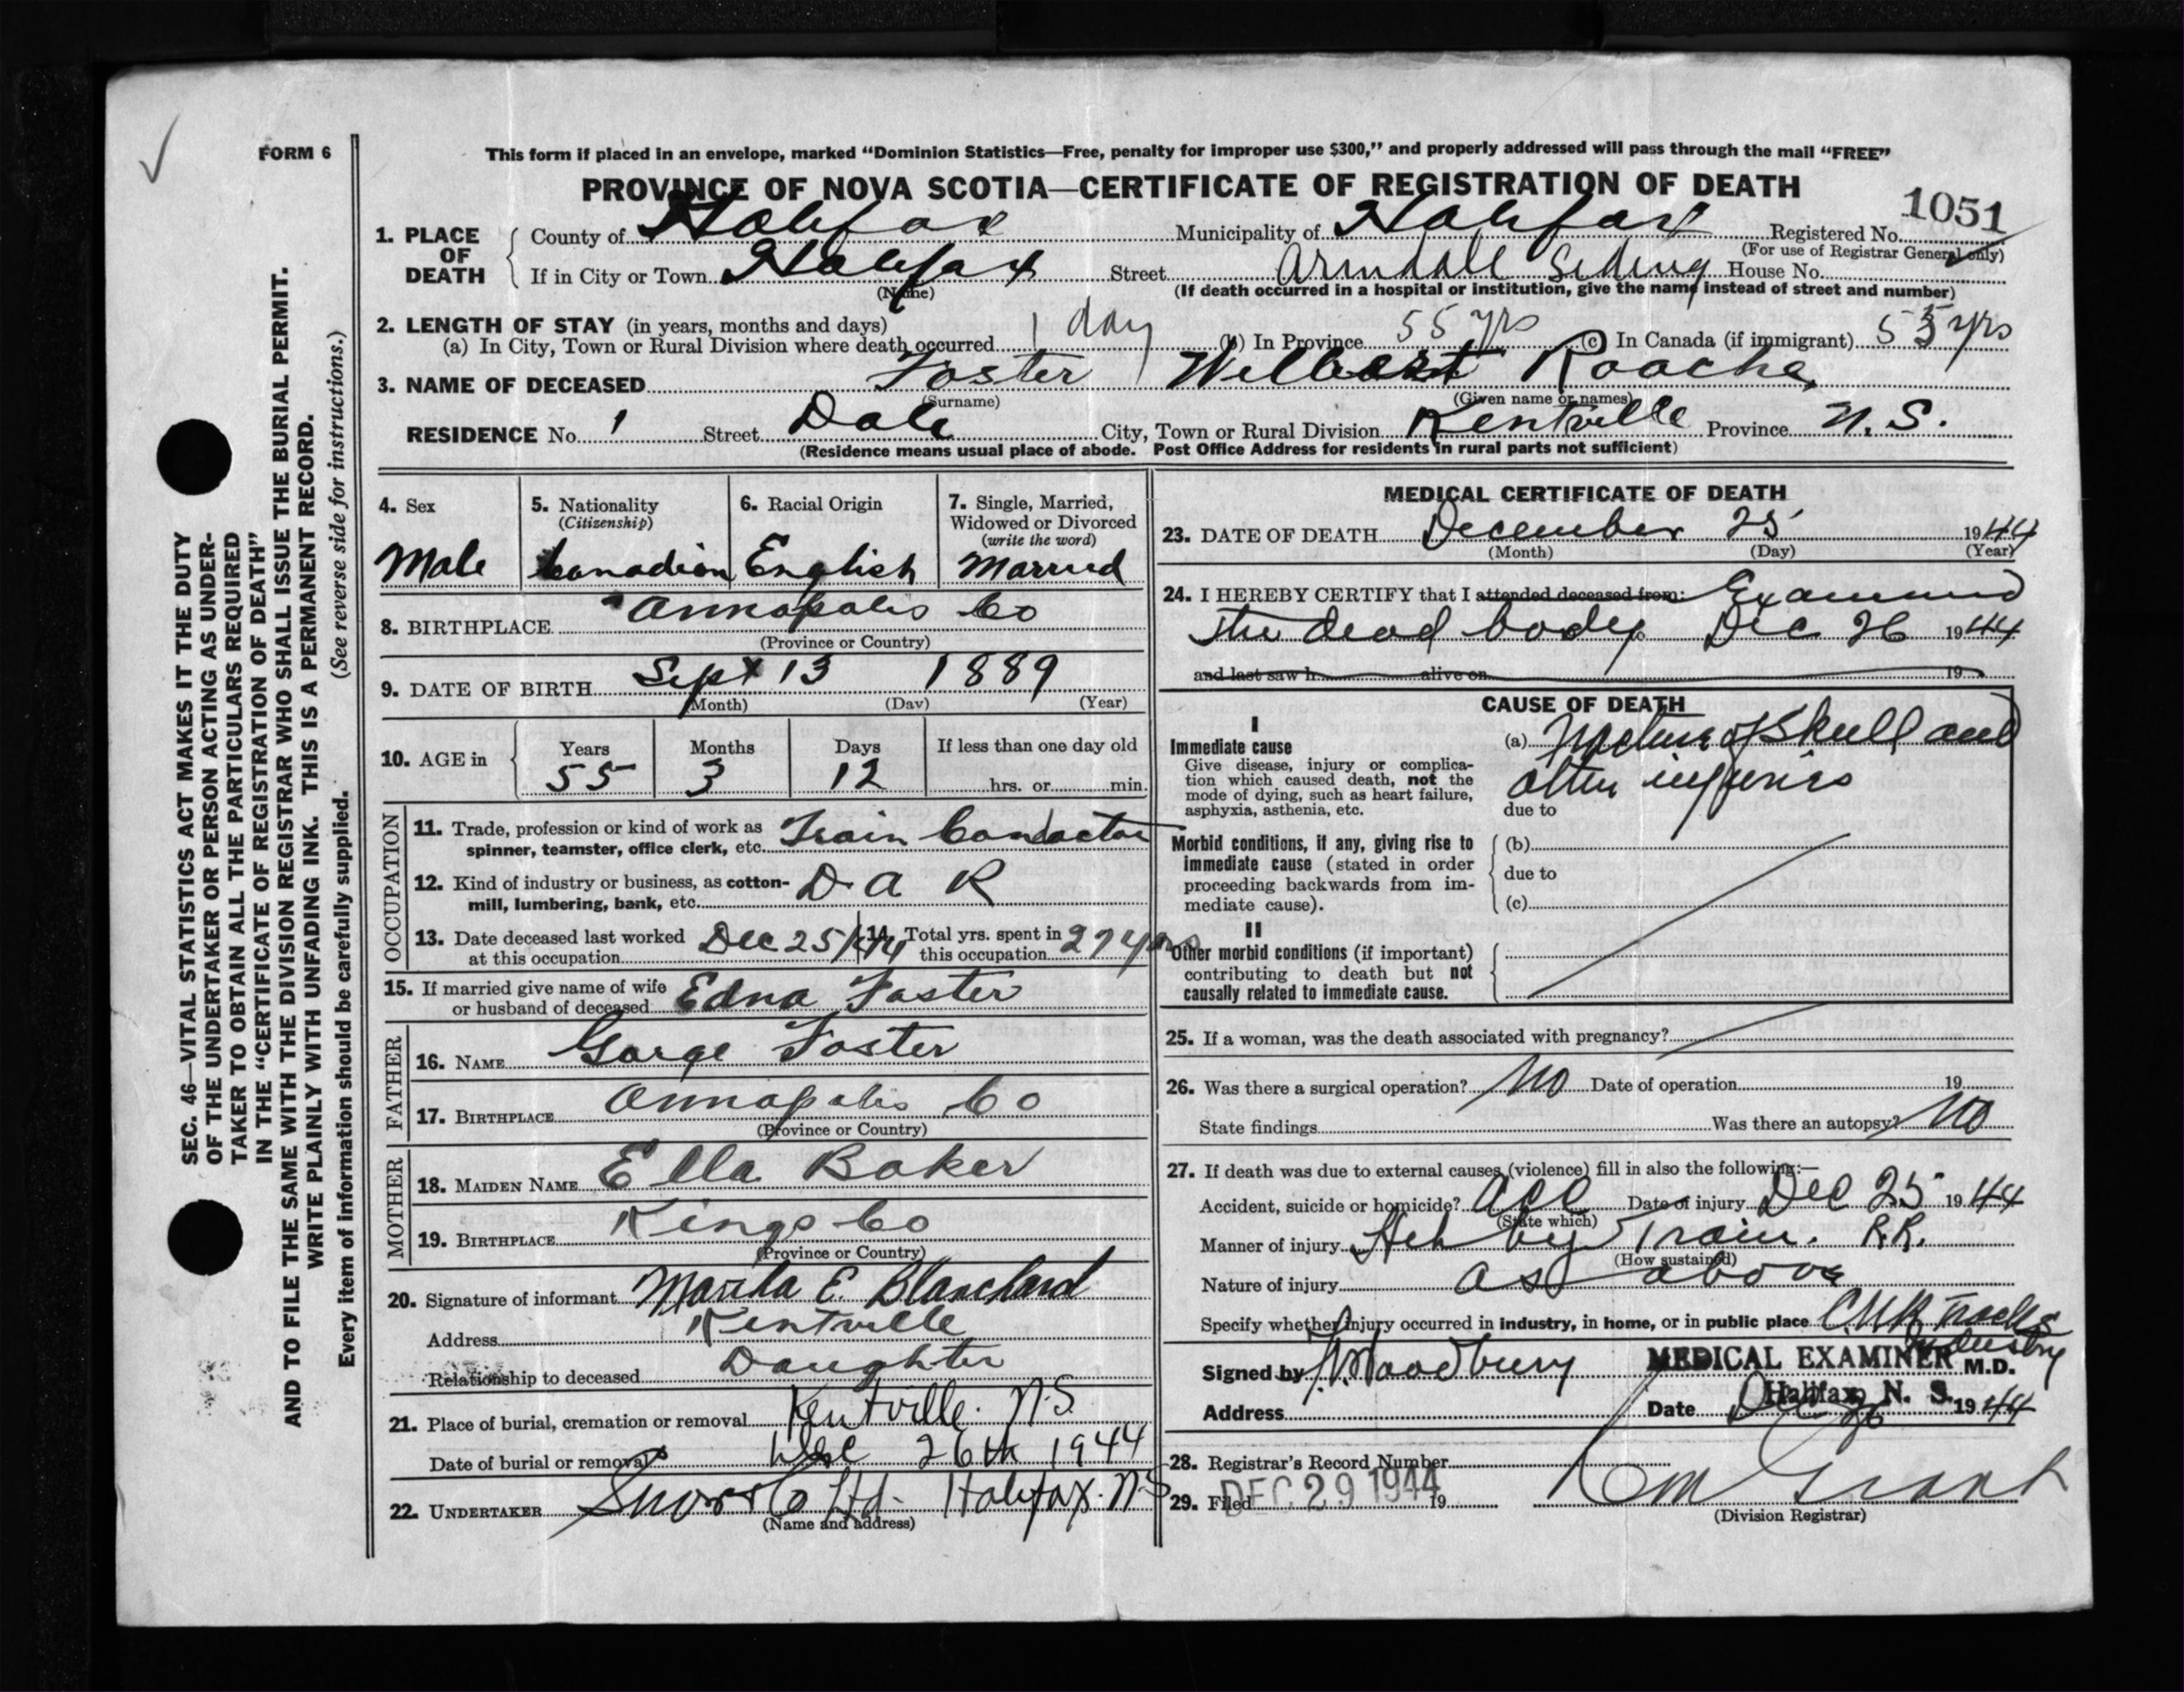 FORM 6
This form if placed in an envelope, marked "Dominion Statistics—Free, penalty for improper use $300," and properly addressed will pass through the mail "FREE"
PROVINCE OF NOVA SCOTIA—CERTIFICATE OF REGISTRATION OF DEATH
1051
1. PLACE OF DEATH County of Halifax Municipality of Halifax Registered No.
(For use of Registrar General only)
If in City or Town Halifax Street Armdale Siding House No.
(Name) (If death occurred in a hospital or institution, give the name instead of street and number)
2. LENGTH OF STAY (in years, months and days)
(a) In City, Town or Rural Division where death occurred 1 day (b) In Province 55 yrs (c) In Canada (if immigrant) 55 yrs
3. NAME OF DECEASED Foster Wilbert Roache
(Surname) (Given name or names)
RESIDENCE No. 1 Street Dale City, Town or Rural Division Kentville Province N.S.
(Residence means usual place of abode. Post Office Address for residents in rural parts not sufficient)
4. Sex Male
5. Nationality (Citizenship) Canadian
6. Racial Origin English
7. Single, Married, Widowed or Divorced (write the word) Married
8. BIRTHPLACE Annapolis Co
(Province or Country)
9. DATE OF BIRTH Sept 13 1889
(Month) (Day) (Year)
10. AGE in Years 55 Months 3 Days 12 If less than one day old
hrs. or min.
OCCUPATION
11. Trade, profession or kind of work as
spinner, teamster, office clerk, etc. Train Conductor
12. Kind of industry or business, as cotton-
mill, lumbering, bank, etc. D A R
13. Date deceased last worked at this occupation Dec 25/44
14. Total yrs. spent in this occupation 27 yrs
15. If married give name of wife
or husband of deceased Edna Foster
FATHER
16. NAME Gorge Foster
17. BIRTHPLACE Annapolis Co
(Province or Country)
MOTHER
18. MAIDEN NAME Ella Baker
19. BIRTHPLACE Kings Co
(Province or Country)
20. Signature of informant E. Blanchard
Address Kentville
Relationship to deceased Daughter
21. Place of burial, cremation or removal Kentville. N.S
Date of burial or removal Dec 26th 1944
22. UNDERTAKER Snow & Co Ltd. Halifax. N.S
(Name and address)
MEDICAL CERTIFICATE OF DEATH
23. DATE OF DEATH December 25 1944
(Month) (Day) (Year)
24. I HEREBY CERTIFY that I attended deceased from: Examined
the dead body Dec 26 1944
and last saw h alive on 19
CAUSE OF DEATH
I
Immediate cause
Give disease, injury or complica-
tion which caused death, not the
mode of dying, such as heart failure,
asphyxia, asthenia, etc.
(a) Fracture of Skull and
other injuries
due to
Morbid conditions, if any, giving rise to
immediate cause (stated in order
proceeding backwards from im-
mediate cause).
(b)
due to
(c)
II
Other morbid conditions (if important)
contributing to death but not
causally related to immediate cause.
25. If a woman, was the death associated with pregnancy?
26. Was there a surgical operation? No Date of operation 19
State findings Was there an autopsy? No
27. If death was due to external causes (violence) fill in also the following:—
Accident, suicide or homicide? Acc Date of injury Dec 25 1944
(State which)
Manner of injury Hit by Train. R.R.
(How sustained)
Nature of injury as above
Specify whether injury occurred in industry, in home, or in public place C.N.R Tracks
Industry
Signed by Woodbury MEDICAL EXAMINER M.D.
Halifax, N. S.
Address Date Dec 26 1944
28. Registrar's Record Number
29. Filed DEC 29 1944 19 Grant
(Division Registrar)
SEC. 46—VITAL STATISTICS ACT MAKES IT THE DUTY
OF THE UNDERTAKER OR PERSON ACTING AS UNDER-
TAKER TO OBTAIN ALL THE PARTICULARS REQUIRED
IN THE "CERTIFICATE OF REGISTRATION OF DEATH"
AND TO FILE THE SAME WITH THE DIVISION REGISTRAR WHO SHALL ISSUE THE BURIAL PERMIT.
WRITE PLAINLY WITH UNFADING INK. THIS IS A PERMANENT RECORD.
Every item of information should be carefully supplied. (See reverse side for instructions.)